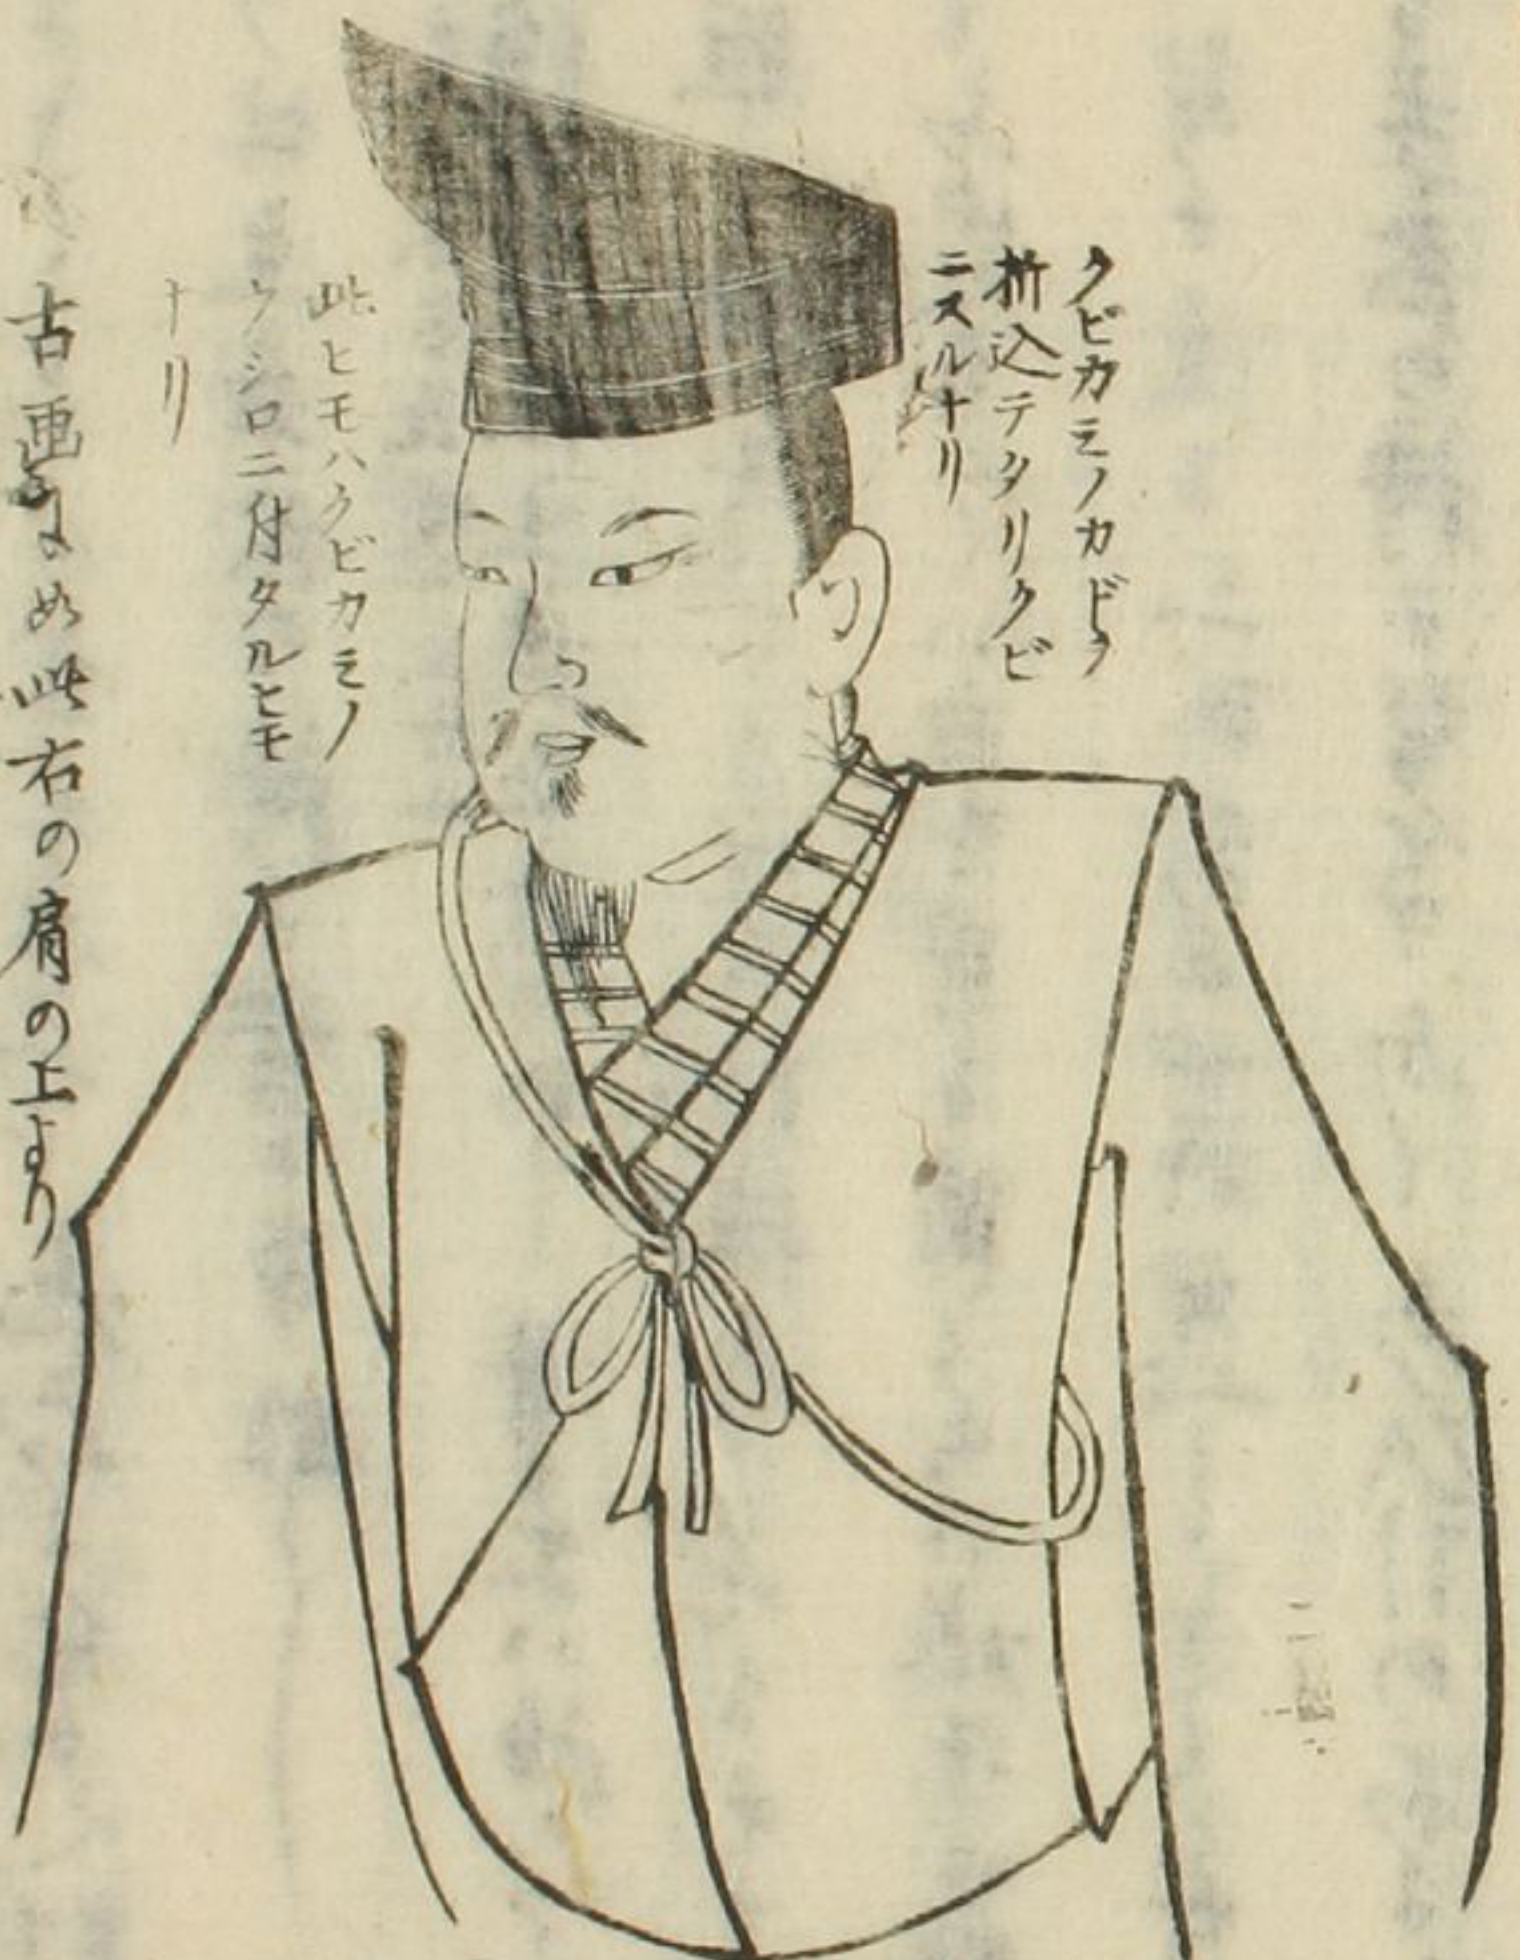 クビカミノカドヲ
折込テタリクビ
ニスルナリ
此ヒモハクビカミノ
ウシロニ付タルヒモ
ナリ
古画に如此右の肩の上より